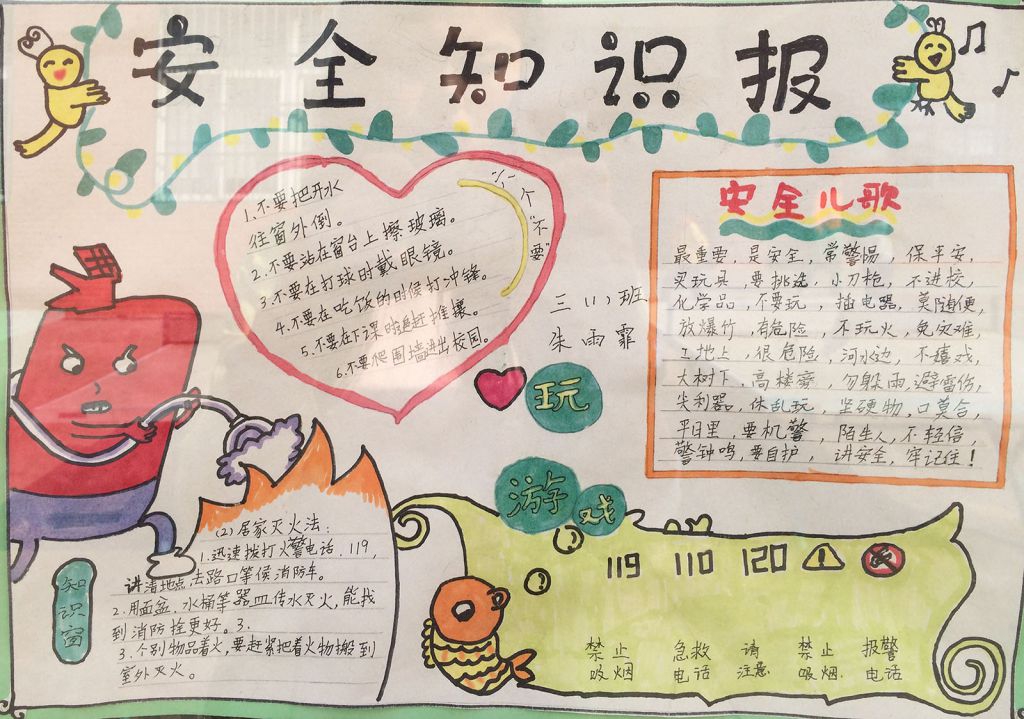 安全知识报
1.不要把开水
往窗外倒。
2.不要站在窗台上擦玻璃。
3.不要在打球时戴眼镜。
4.不要在吃饭的时候打冲锋。
5.不要在下课时追赶推攘。
6.不要爬围墙进出校园。
六个"不要"
三(1)班
朱雨霏
安全儿歌
最重要,是安全,常警惕,保平安,
买玩具,要挑选,小刀枪,不进校,
化学品,不要玩,插电器,莫随便,
放爆竹,有危险,不玩火,免灾难,
工地上,很危险,河水边,不嬉戏,
大树下,高楼旁,勿躲雨,避雷伤,
尖利器,休乱玩,坚硬物,口莫含,
平日里,要机警,陌生人,不轻信,
警钟鸣,要自护,讲安全,牢记住!
玩
游戏
(2)居家灭火法:
1.迅速拨打火警电话,119,
讲清地点,去路口等候消防车。
2.用面盆.水桶等器皿传水灭火,能找
到消防拴更好。3.
3.个别物品着火,要赶紧把着火物搬到
室外灭火。
知识窗
119 110 120
禁止 急救 请 禁止 报警
吸烟 电话 注意 吸烟 电话